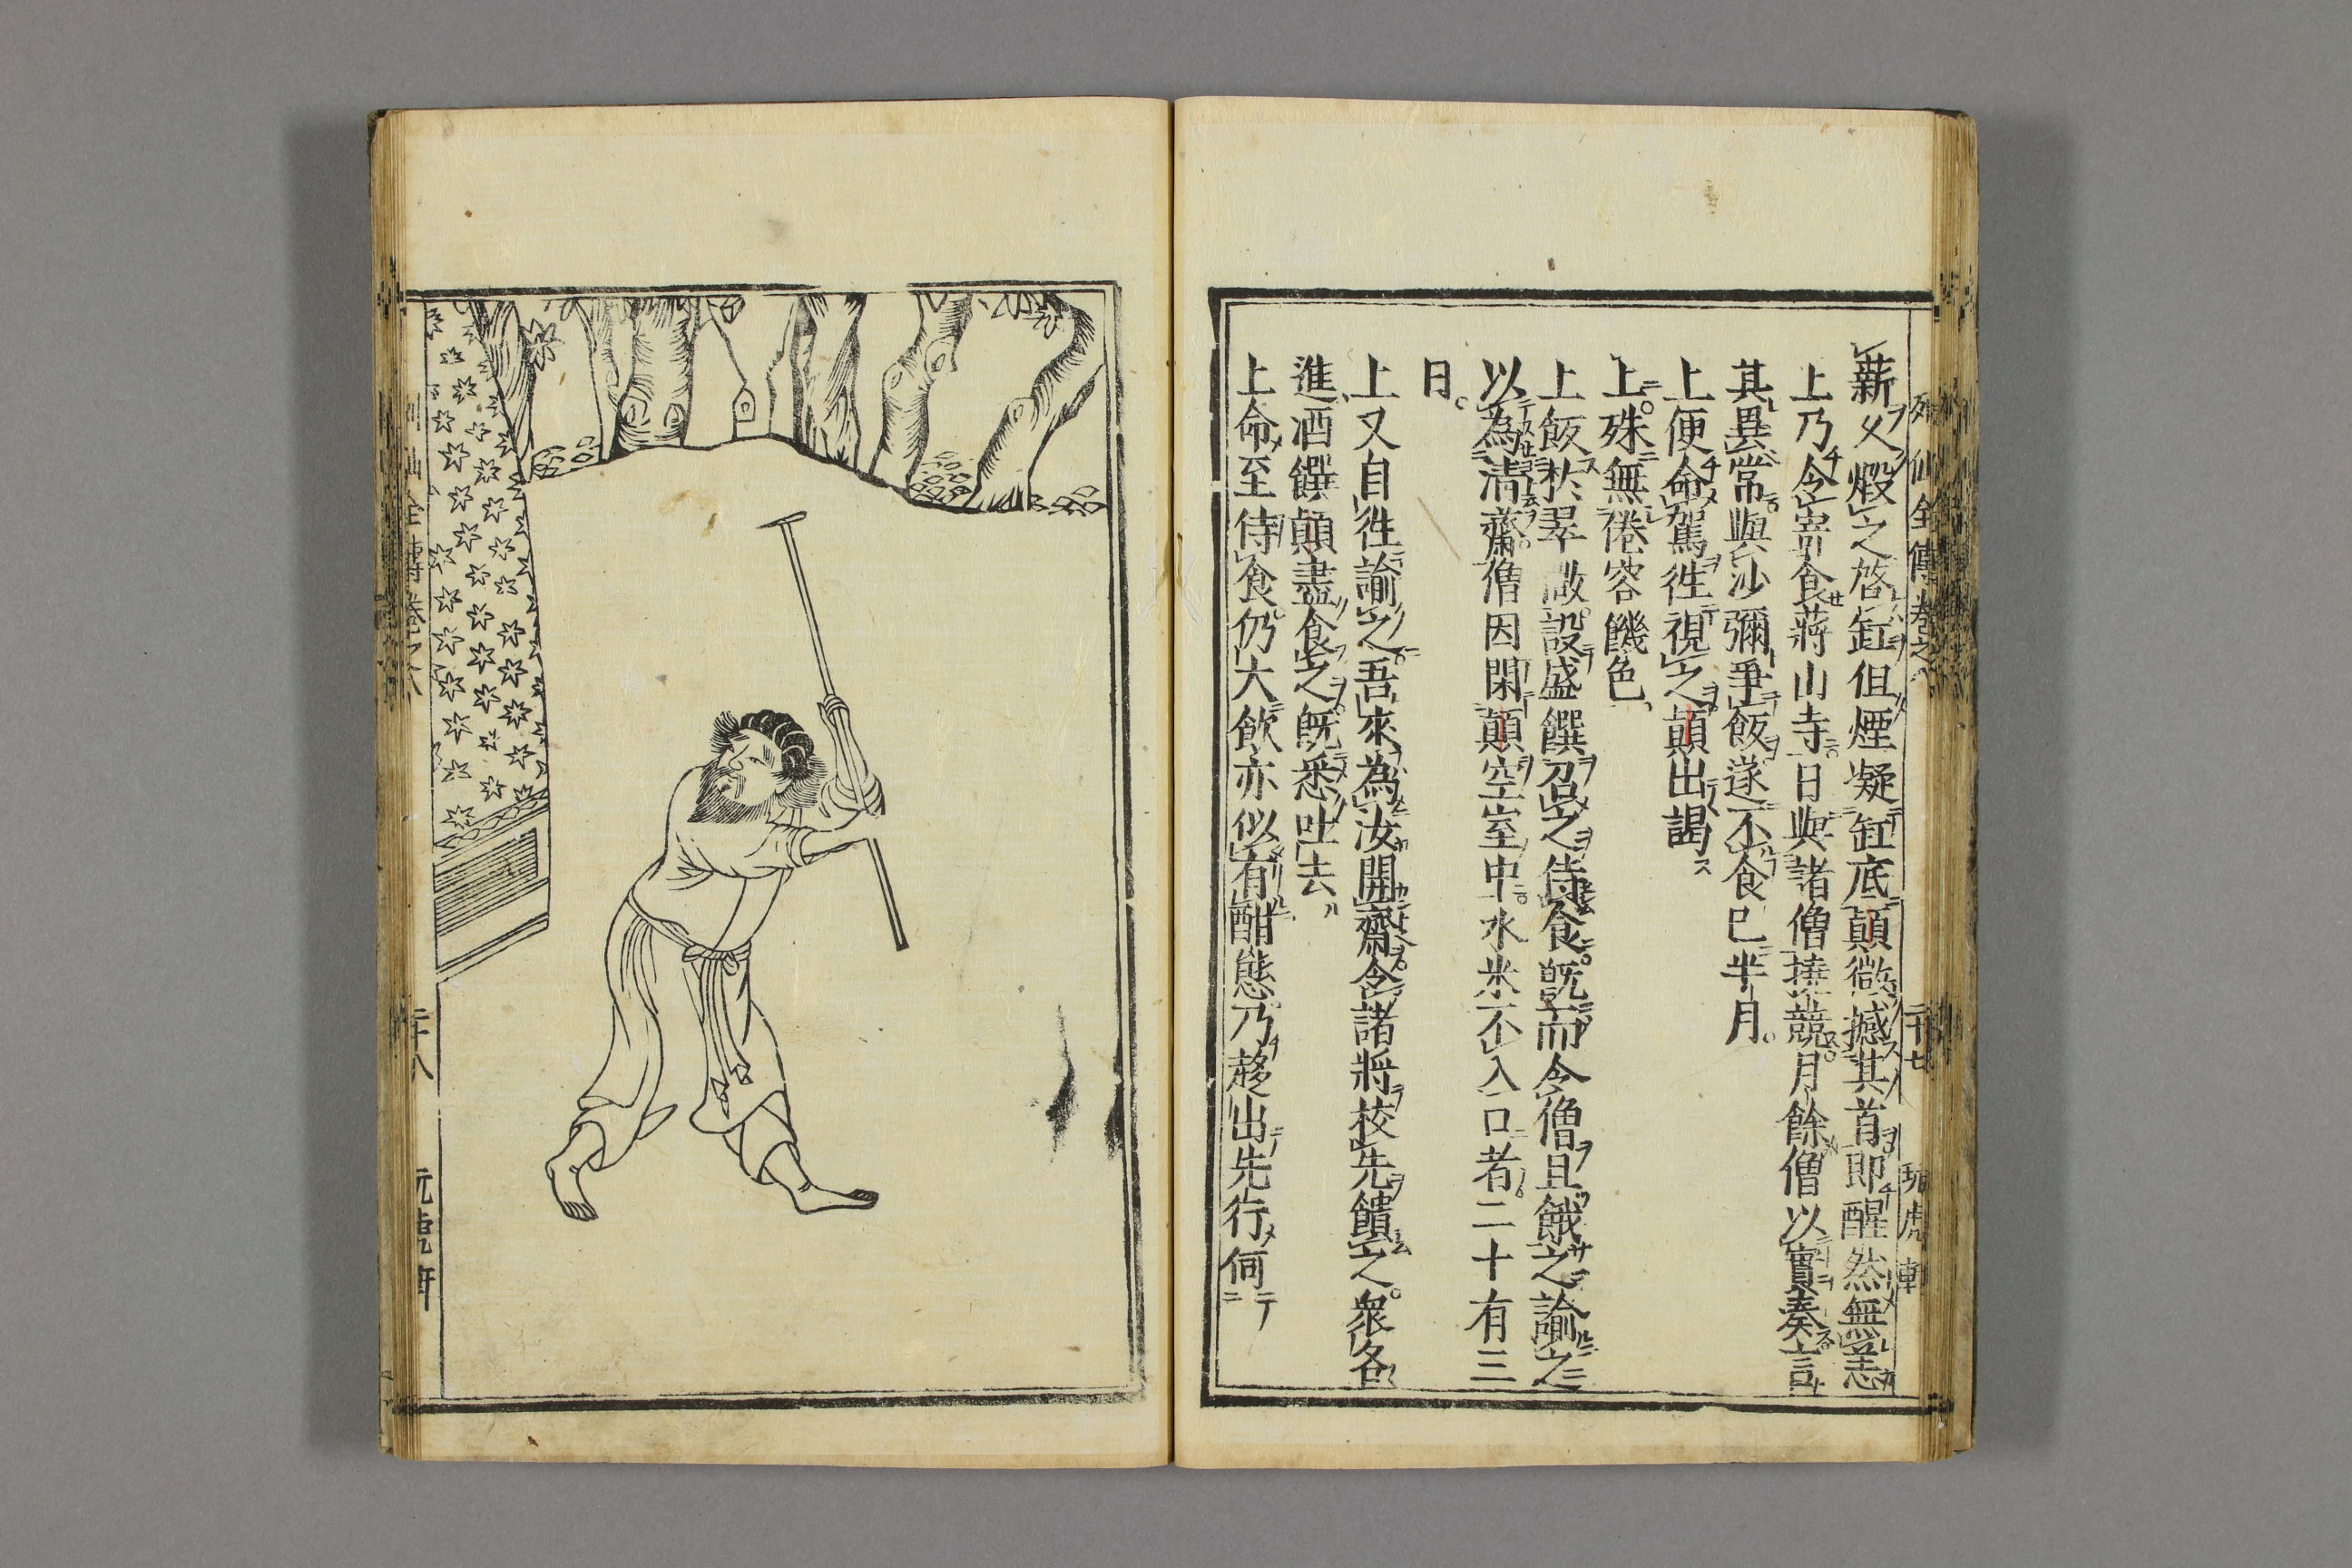 列仙全傳卷之八 二十七 玩虎軒
薪义煅之啓缸但煙凝缸底顛微撼其首即醒然無恙
上乃令寄食蔣山寺日與諸僧撓競月餘僧以實奏言
其異常與沙彌爭飯遂不食巳半月
上便命駕徃視之顛出謁
上殊無倦容饑色
上飯於翠微設盛饌召之侍食既而令僧且餓之諭之
以為清齋僧因閑顛空室中水米不入口者二十有三
日
上又自徃諭之吾來為汝開齋令諸將校先饋之衆各
進酒饌顛盡食之既悉吐去
上命至侍食仍大飲亦似有酣態乃趍出先行何
列仙全傳卷之八 二十八 玩虎軒